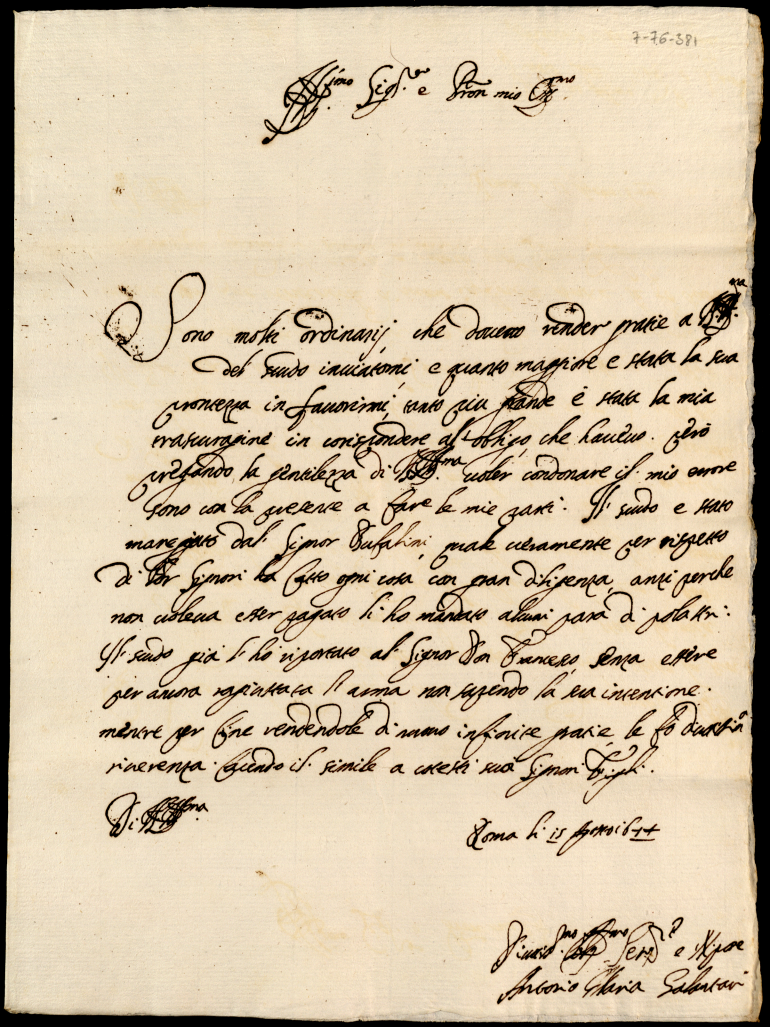 7-76-381
Ill.imo Sig.re e Pron mio Oss.mo
Sono molti ordinarij che doveuo render gratie a V.S. Ill.ma
del scudo inuiatomi, e quanto maggiore e stata la sua
prontezza in fauorirmi, tanto piu grande è stata la mia
trascuragine in corispondere all'obligo che haueuo. però
pregando la gentilezza di V.S. Ill.ma voler condonare il mio errore
sono con la presente a fare le mie parti. Il scudo e stato
maneggiato dal Signor Bufalini, quale veramente per rispetto
di Signori ha fatto ogni cosa con gran diligenza, anzi perche
non voleua esser pagato li ho mandato alcuni para di polastri:
Il scudo già l'ho riportato al Signor Don Francesco, senza essere
per ancora ragiustata l'arma non sapendo la sua intentione.
mentre per fine rendendole di nuouo infinite gratie, le fò
riuerenza. facendo il simile a cotesti suoi Signori figli.
Di V.S. Ill.ma
Roma li 15 Agosto 1644
Oblig.mo Ser.re e
Antonio Maria